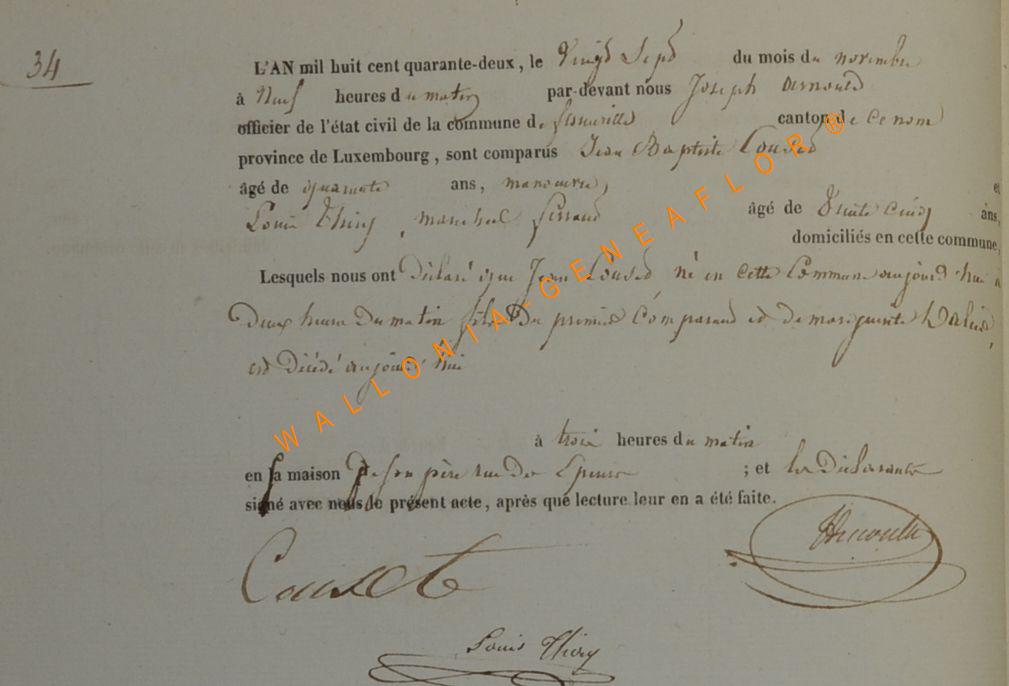 34
L'AN mil huit cent quarante-deux, le Vingt Sept du mois du novembre
à Neuf heures du matin par-devant nous Joseph Arnould
officier de l'état civil de la commune de canton de ce nom
province de Luxembourg, sont comparus Jean Baptiste Couset
âgé de quarante ans, manoeuvre, et
Louis Thiry, marechal ferrand âgé de trente cinq ans,
domiciliés en cette commune,
Lesquels nous ont Déclaré que Jean Couset né en cette Commune aujourd'hui à
Deux heures du matin fils du premier Comparand et de marguerite
est Décédé aujourd'hui
à trois heures du matin
en sa maison de son père rue de ; et les Déclarants
signé avec nous le présent acte, après que lecture leur en a été faite.
Couset
Arnould
Louis Thiry
WALLONIA-GENEAFLOR®